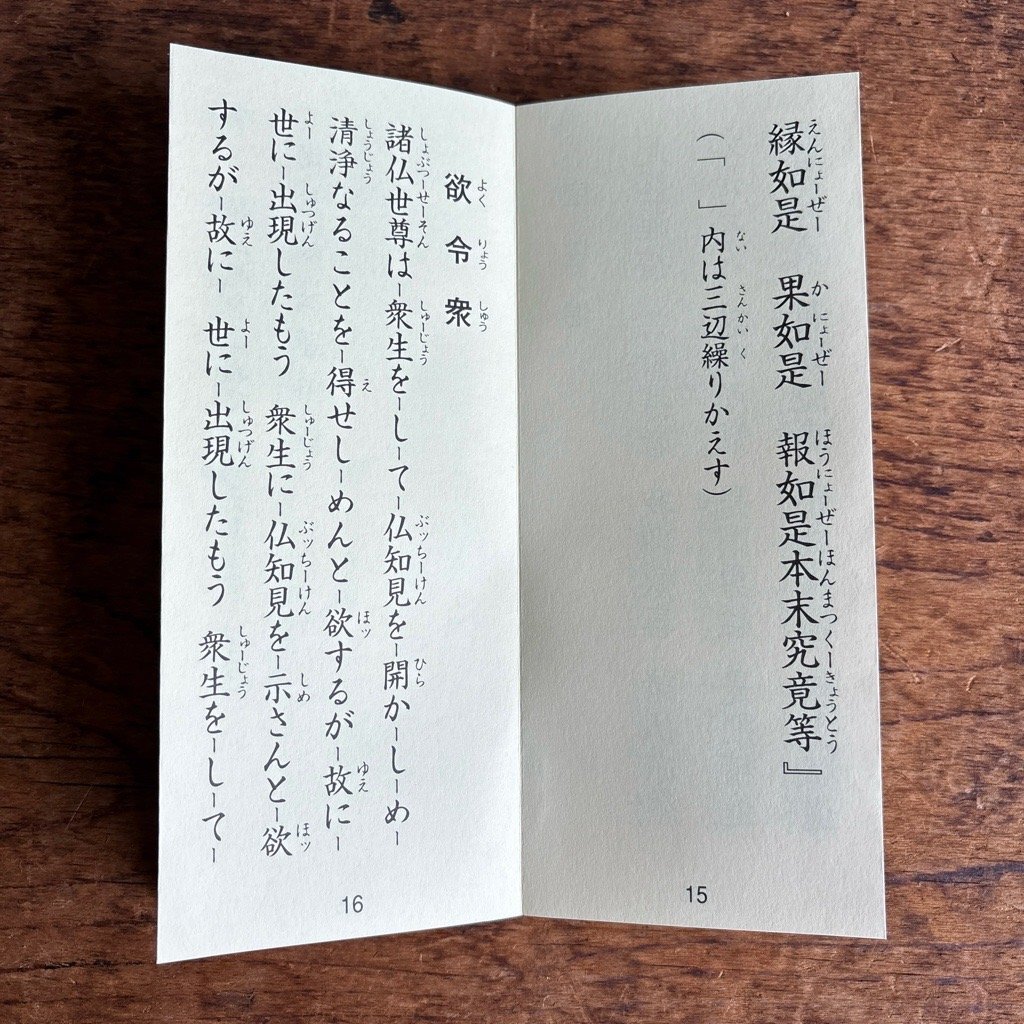 縁如是　果如是　報如是本末究竟等』
(「　」内は三辺繰りかえす)
15
欲令衆
諸仏世尊はー衆生をーしーてー仏知見をー開かーしーめー
清浄なることをー得せしーめんとー欲するがー故にー
世にー出現したもう　衆生にー仏知見をー示さんとー欲
するがー故にー　世にー出現したもう　衆生をーしーてー
16